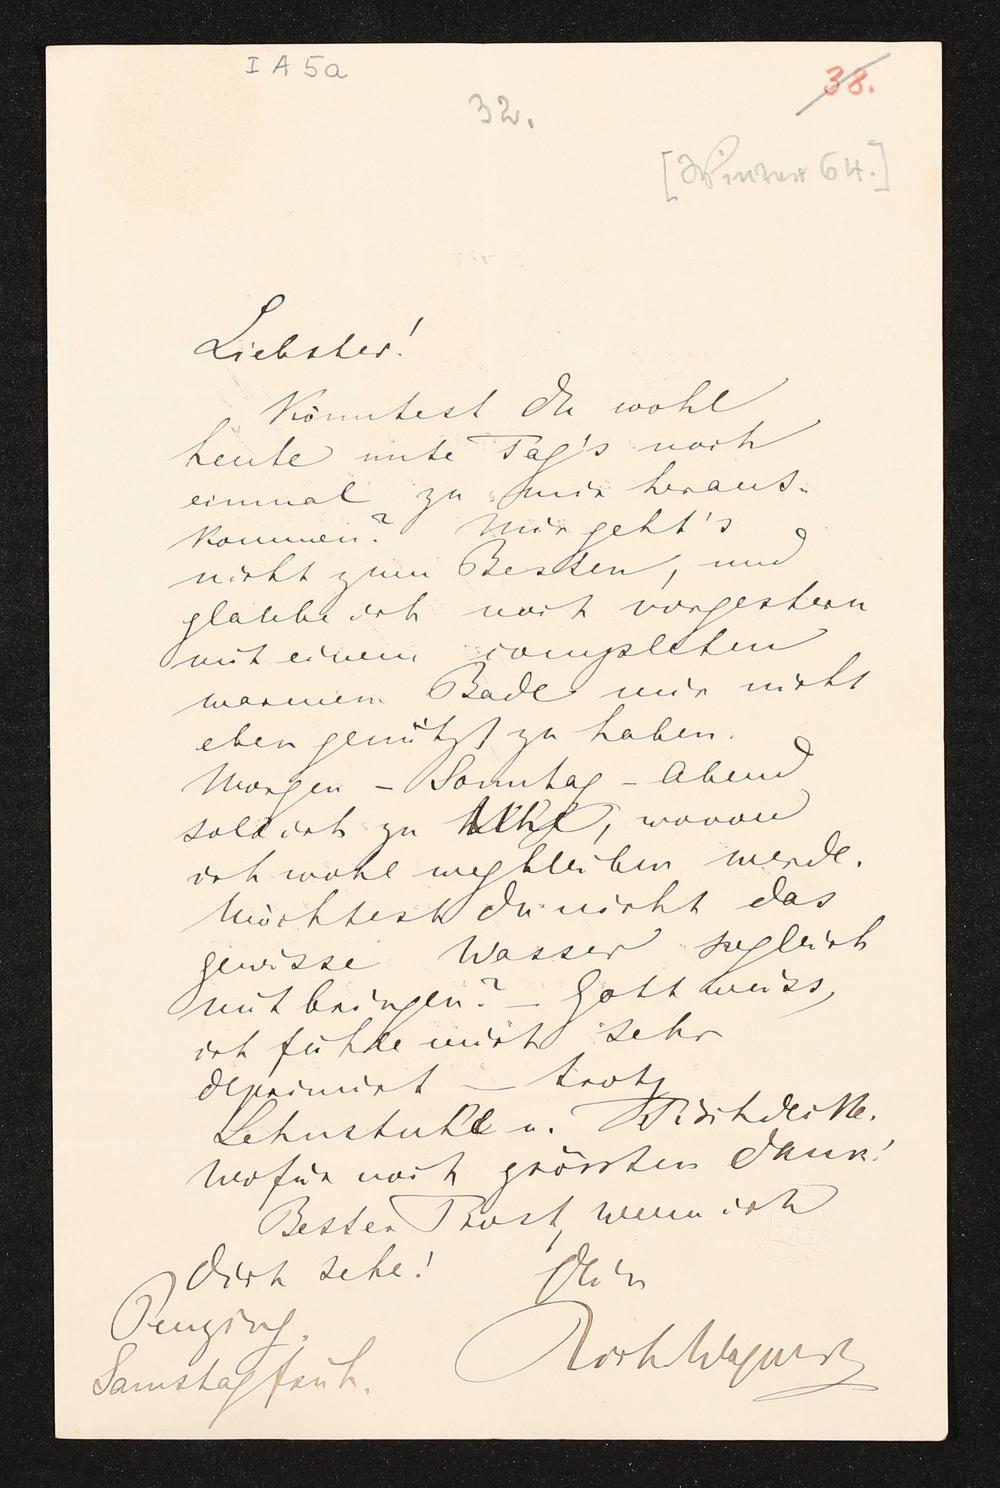 I A 5a
32.
38.
[Winter 64.]
Liebster!
Könntest Du wohl
heute unter Tag's noch
einmal zu mir heraus-
kommen? Mir geht's
nicht zum Besten, und
glaube ich noch vorgestern
mit einem completen
warmen Bade mir nicht
eben genützt zu haben.
Morgen – Sonntag – Abend
soll ich zu, wovon
ich wohl wegbleiben werde.
Möchtest Du nicht das
gewisse Wasser sogleich
mit bringen? – Gott weiss,
ich fühle mich sehr
deprimirt – trotz
Lehnstuhl u. Tischdecke.
Wofür noch grössten Dank!
Bester Trost, wenn ich
Dich sehe! Dein
Penzing.
Samstag früh.
Rich. Wagner